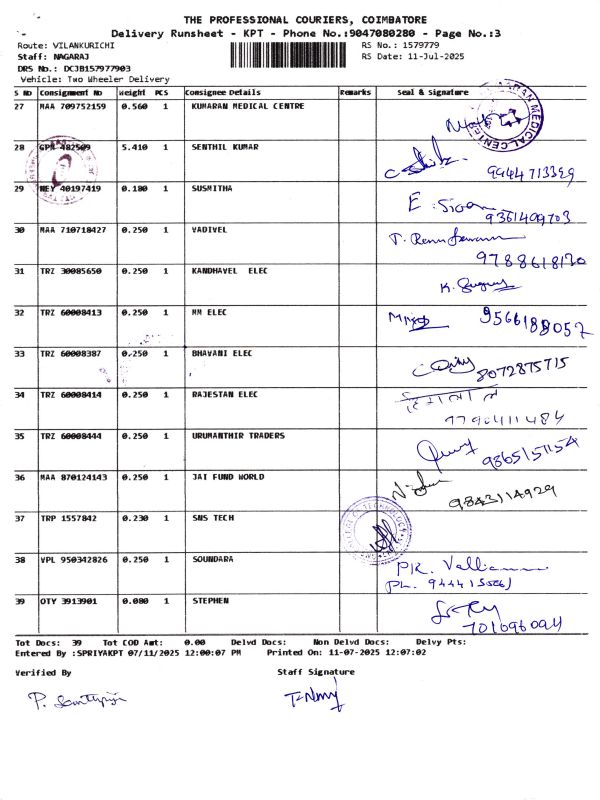 THE PROFESSIONAL COURIERS, COIMBATORE
Delivery Runsheet - KPT - Phone No.:9047080280 - Page No.:3
Route: VILANKURICHI RS No.: 1579779
Staff: NAGARAJ RS Date: 11-Jul-2025
DRS No.: DCJB157977903
Vehicle: Two Wheeler Delivery
S NO Consignment No Weight PCS Consignee Details Remarks Seal & signature
27 MAA 709752159 0.560 1 KUMARAN MEDICAL CENTRE
28 GPR 482509 5.410 1 SENTHIL KUMAR
9444713399
29 NEY 40197419 0.180 1 SUSMITHA
9361409703
30 MAA 710718427 0.250 1 VADIVEL
9788618120
31 TRZ 30085650 0.250 1 KANDHAVEL ELEC
32 TRZ 60008413 0.250 1 MM ELEC 9566188057
33 TRZ 60008387 0.250 1 BHAVANI ELEC
8072875715
34 TRZ 60008414 0.250 1 RAJESTAN ELEC
35 TRZ 60008444 0.250 1 URUMANTHIR TRADERS
9365151154
36 MAA 870124143 0.250 1 JAI FUND WORLD
9843114929
37 TRP 1557842 0.230 1 SNS TECH
38 VPL 950342826 0.250 1 SOUNDARA
39 OTY 3913901 0.080 1 STEPHEN
7010960094
Tot Docs: 39 Tot COD Amt: 0.00 Delvd Docs: Non Delvd Docs: Delvy Pts:
Entered By :SPRIYAKPT 07/11/2025 12:00:07 PM Printed On: 11-07-2025 12:07:02
Verified By Staff Signature